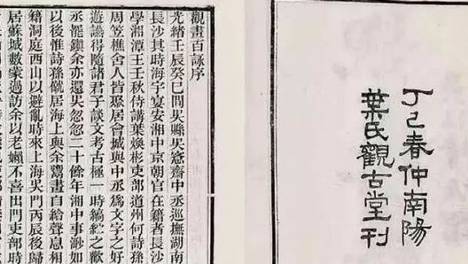 丁巳春仲南陽
葉氏觀古堂刊
觀畫百詠序
光緒壬辰癸巳間吳縣吳愙齋中丞巡撫湖南
長沙其時海宇宴安湘中京朝官在籍者長沙
學湘潭王壬秋侍講葉煥彬吏部道州何詩孫
周笠樵舍人皆聚居會城與中丞為文字之好
遊讌得隨諸君子談文考古極一時縞紵之歡
丞罷鎮余亦還吳忽忽二十餘年湘中事渺
以後惟詩孫僦居海上與余鬻畫自給聲息相
籍洞庭西山以避亂時來上海吳門丙辰後歸
居蘇城數豪過訪余以老嬾不喜出門吏部時